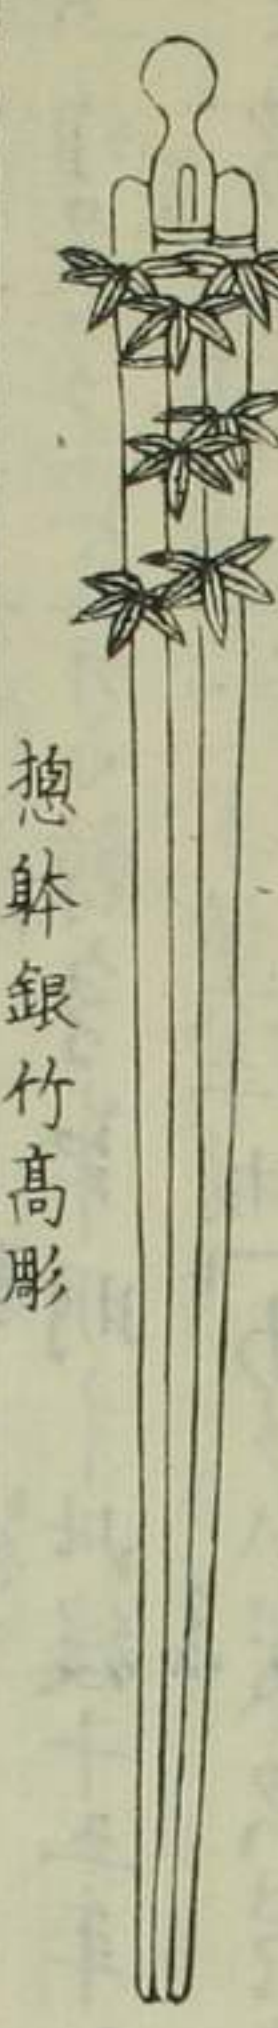 揔躰銀竹高彫